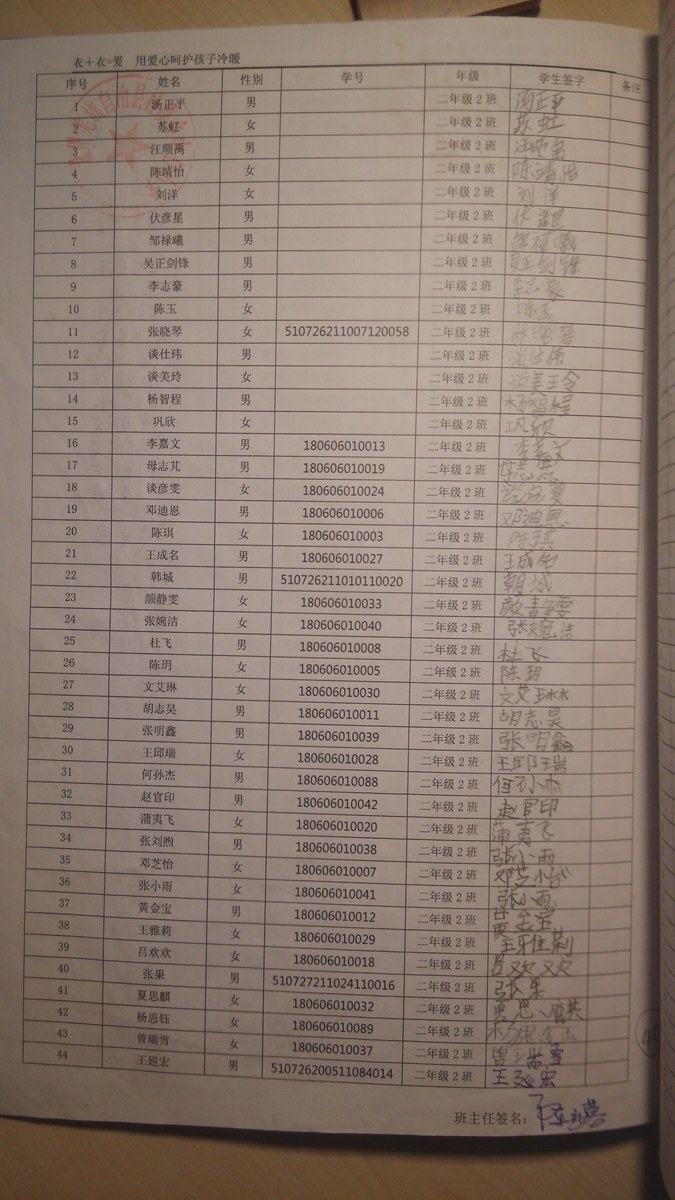 衣+衣=爱 用爱心呵护孩子冷暖
序号 姓名 性别 学号 年级 学生签字 备注
1 汤正平 男 二年级2班 汤正平
2 苏虹 女 二年级2班 苏虹
3 汪顺禹 男 二年级2班
4 陈靖怡 女 二年级2班 陈靖怡
5 刘洋 女 二年级2班 刘洋
6 伏彦星 男 二年级2班
7 邹禄曦 男 二年级2班
8 吴正剑锋 男 二年级2班 吴正剑锋
9 李志豪 男 二年级2班 李志豪
10 陈玉 女 二年级2班 陈玉
11 张晓琴 女 510726211007120058 二年级2班 张晓琴
12 谈仕玮 男 二年级2班
13 谈美玲 女 二年级2班 谈美玲
14 杨智程 男 二年级2班 杨智程
15 巩欣 女 二年级2班 巩欣
16 李嘉文 男 180606010013 二年级2班 李嘉文
17 母志芃 男 180606010019 二年级2班
18 谈彦雯 女 180606010024 二年级2班
19 邓迪恩 男 180606010006 二年级2班 邓迪恩
20 陈琪 女 180606010003 二年级2班 陈琪
21 王成名 男 180606010027 二年级2班 王成名
22 韩城 男 510726211010110020 二年级2班
23 颜静雯 女 180606010033 二年级2班 颜静雯
24 张婉洁 女 180606010040 二年级2班 张婉洁
25 杜飞 男 180606010008 二年级2班 杜飞
26 陈玥 女 180606010005 二年级2班 陈玥
27 文艾琳 女 180606010030 二年级2班 文艾琳
28 胡志昊 男 180606010011 二年级2班 胡志昊
29 张明鑫 男 180606010039 二年级2班 张明鑫
30 王邱瑞 女 180606010028 二年级2班 王邱瑞
31 何孙杰 男 180606010088 二年级2班 何孙杰
32 赵官印 男 180606010042 二年级2班 赵官印
33 蒲夷飞 女 180606010020 二年级2班 蒲夷飞
34 张刘煦 男 180606010038 二年级2班 张小雨
35 邓芝怡 女 180606010007 二年级2班 邓芝怡
36 张小雨 女 180606010041 二年级2班 张小雨
37 黄金宝 男 180606010012 二年级2班 黄金宝
38 王雅莉 女 180606010029 二年级2班 王雅莉
39 吕欢欢 女 180606010018 二年级2班 吕欢欢
40 张果 男 510727211024110016 二年级2班 张果
41 夏思麒 女 180606010032 二年级2班 夏思麒
42 杨思钰 女 180606010089 二年级2班 杨思钰
43 曾瑞雪 女 180606010037 二年级2班 曾瑞雪
44 王廻宏 男 510726200511084014 二年级2班
班主任签名: